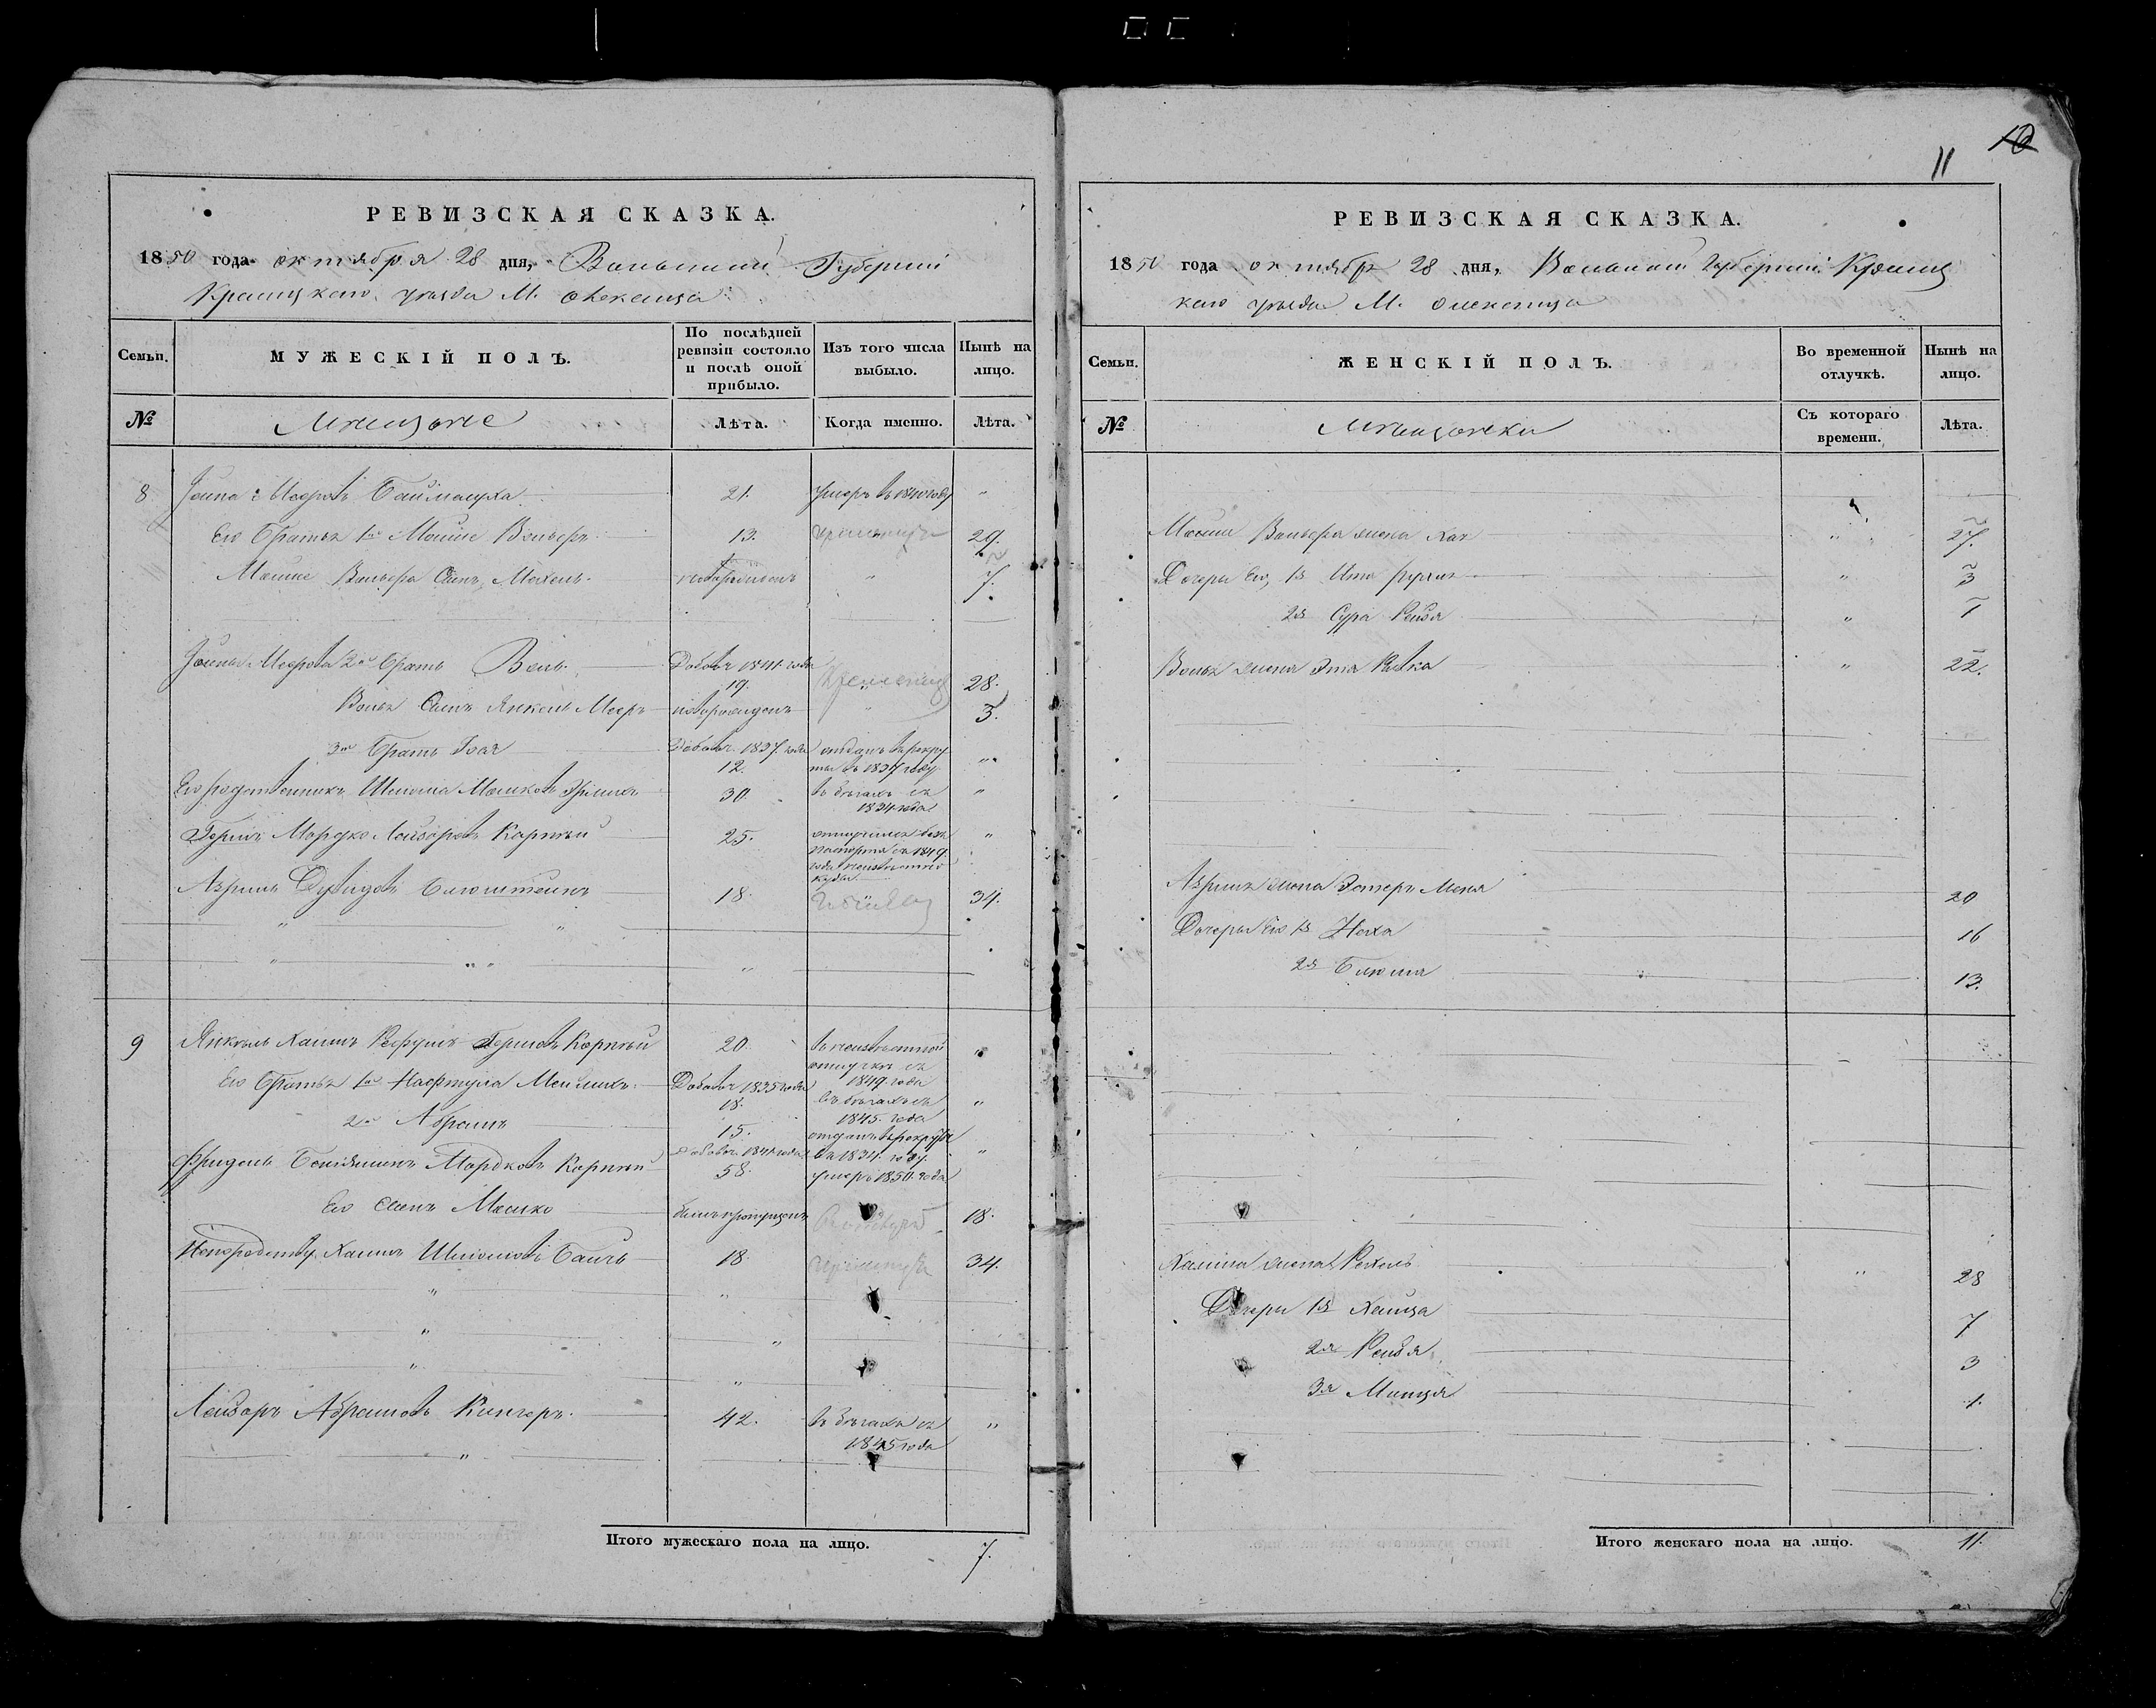 РЕВИЗСКАЯ СКАЗКА.
1850 года октября 28 дня, Волынской Губернии
уезда М. Олексинца
Семьи.
МУЖЕСКІЙ ПОЛЪ.
По послѣдней ревизіи состояло и послѣ оной прибыло.
Изъ того числа выбыло.
Нынѣ на лицо.
№
Мещане
Лѣта.
Когда именно.
Лѣта.
8 Иосева 21. умеръ въ 1840 году "
Его Братья 1й Мошко Вольфъ 13. 29.
Мошко Вольфа Сынъ Мехель новорожденъ " 7.
2й братъ Воль Добавъ 1841 года 19. " 28.
Вольа Сынъ Янкель Мееръ новорожденъ " 3.
3й Братъ Добавъ 1837 года 12. отданъ въ рекруты въ 1837 году "
Его родственникъ Шлиома Мошковъ 30. въ бѣгахъ съ 1834 года "
Гершъ Мордко Лейзоровъ Корнѣй 25. отлучился безъ паспорта съ 1849 года неизвѣстно куда "
Азриль Дувидовъ Блюштейнъ 18. 34.
9 Янкель Хаимъ Гершовъ Корнѣй 20. въ неизвѣстной отлучкѣ съ 1849 года "
Его Братья 1й Нафтула Мейлихъ Добавъ 1835 года 18. въ бѣгахъ съ 1845 года "
2й Абрамъ 15. отданъ въ рекруты въ 1834 году "
Фридель Беніяминъ Мордковъ Корнѣй Добавъ 1841 года 58. умеръ 1850 года
Его сынъ Мошко былъ пропущенъ 18.
Хаимъ Шлиомовъ Баилъ 18. 34.
Лейзоръ Абрамовъ 42. въ бѣгахъ съ 1845 года "
Итого мужескаго пола на лицо. 7.
10
11
РЕВИЗСКАЯ СКАЗКА.
1850 года октября 28 дня, Волынской Губерніи
уезда М. Олексинца
Семьи.
ЖЕНСКІЙ ПОЛЪ.
Во временной отлучкѣ.
Нынѣ на лицо.
№
Мещанки
Съ котораго времени.
Лѣта.
Мошка Вольфа жена Хая " 27.
Дочери его, 1я Ита " 3
2я Сура Рейзя " 1
Вольа жена Эта Ривка " 22.
Азриля жена Эстеръ Меня 20
Дочери его 1я Неха 16
2я Блюма 13.
Хаима жена Рехель " 28
Дочери 1я Хаица 7
2я Рейзя 3
3я Минця 1.
Итого женскаго пола на лицо. 11.